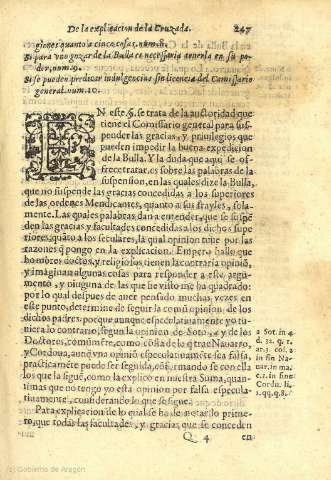 De la explicacion de la Cruzada. 247
giones quanto a cinco cosas. num. 8.
Si para yr o gozar de la Bulla es necessario tenerla en su po-
der, num. 9.
Si se pueden predicar indulgencias sin licencia del Comissario
general. num. 10.
EN este §. se trata de la auctoridad que
tiene el Comissario general para sus-
pender las gracias, y priuilegios que
pueden impedir la buena expedicion
de la Bulla. Y la duda que aqui se of-
frece tratar, es sobre las palabras de la
suspension, en las quales dize la Bulla,
que no suspende las gracias concedidas a los superiores
de las ordenes Mendicantes, quanto a sus frayles, sola-
mente. Las quales palabras dan a entender, que se suspē
den las gracias y facultades concedidas a los dichos supe
riores, quāto a los seculares, la qual opinion tuue por las
razones q̄ pongo en la explicacion. Empero hallo que
hombres doctos, y religiosos tienen la contraria opiniō,
y imaginan algunas cosas para responder a este, argu-
mento, y ninguna de las que he visto me ha quadrado:
por lo qual despues de auer pensado muchas vezes en
este punto, determine de seguir la comū opinion, de los
dichos padres: porque aunque especulatiuamente yo tu-
uiera lo contrario, segun la opinion de Soto, a y de los
Doctores, comūmēte, como cōsta de lo q̄ trae Nauarro,
y Cordoua, aunq̄ vna opiniō especulatiuamēte sea falsa,
practicamēte puede ser seguida, cōfirmando se con ella
los que la siguē, como lo explico en nuestra Suma, quan-
timas que no tengo yo esta opinion por falsa especula-
tiuamente, considerando lo que se sigue.
Para explicacion de lo qual se ha de notar lo prime-
ro, que todas las facultades, y gracias que se conceden
a Sot. in 4
d. 32. q. 1.
ar. 3. col. 2.
in fin Na-
uar. in ma.
c. 1. in fine
Cordu. li.
1. qq. q. 8.
Q 4 en
© Gobierno de Aragón